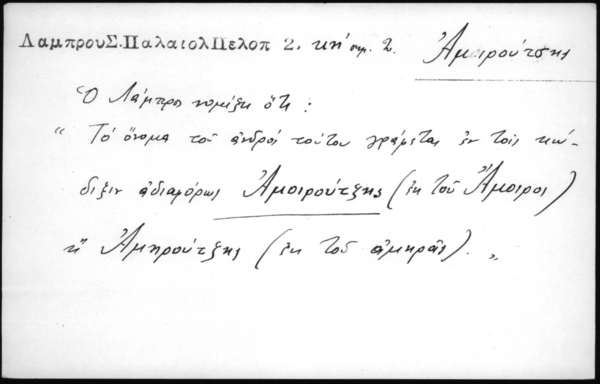 ΛαμπρουΣ.ΠαλαιολΠελοπ 2. κη' σημ. 2. Ἀμοιρούτσης
Ὁ Λάμπρο νομίζει ὅτι :
“ Τό ὄνομα τοῦ ἀνδρός τούτου γράφεται ἐν τοῖς κώ-
διξιν ἀδιαφόρως Ἀμοιρούτζης (ἐκ τοῦ Ἄμοιρος)
ἢ Ἀμηρούτζης (ἐκ τοῦ ἀμηρᾶς). „